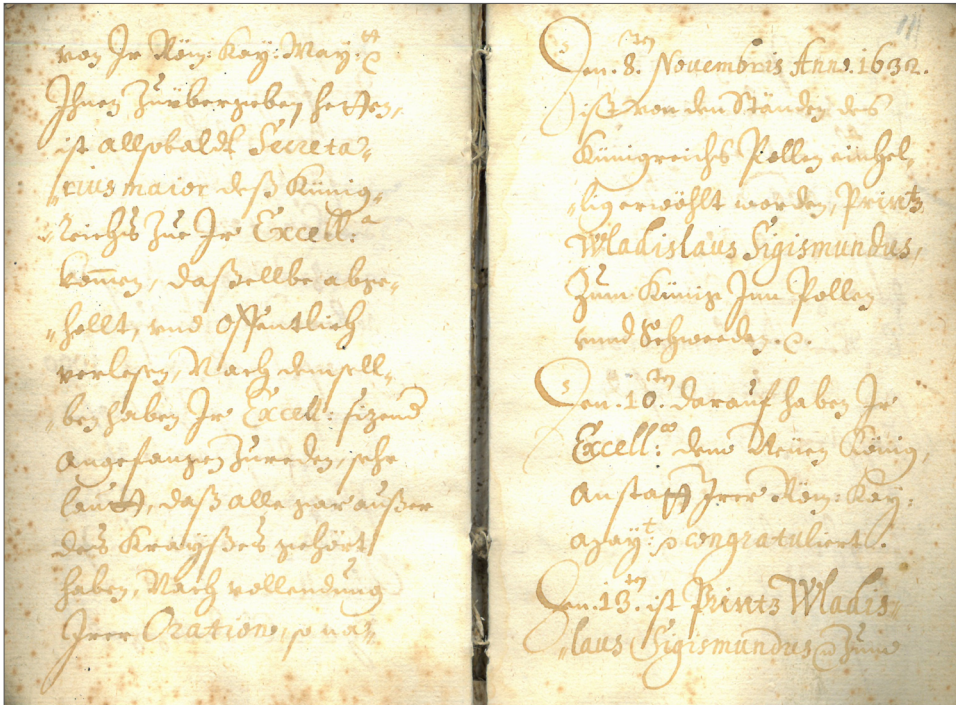 von Ir Röm: Kay: May: tt
Ihnen Zuübergeben hetten,
ist allsobaldt Secreta-
rius maior deß Künig-
Reichs Zue Ir Excell: a
komen, daßelbe abge-
hollt, vnd Offentlich
verlesen, Nach demsell-
ben haben Ir Excell: sizend
Angefangen Zureden, sehr
lautt, daß alle gar außer
des Krayßes gehört
haben, Nach vollendung
Irer Oration, so na-
11
Den .8. ten Nouembris Anno. 1632.
ist von den Ständen des
Künigreichs Pollen einhel-
lig erwöhlt worden, Printz
Wladislaus Sigismundus,
Zum Künige Inn Pollen
vnnd Schweeden. &.
Den .10. ten darauf haben Ir
Excell: dem Neüen König,
Anstatt Irer Röm: Kay:
May: t congratuliert.
Den .13. ten ist Printz Wladis-
laus Sigismundus Zum